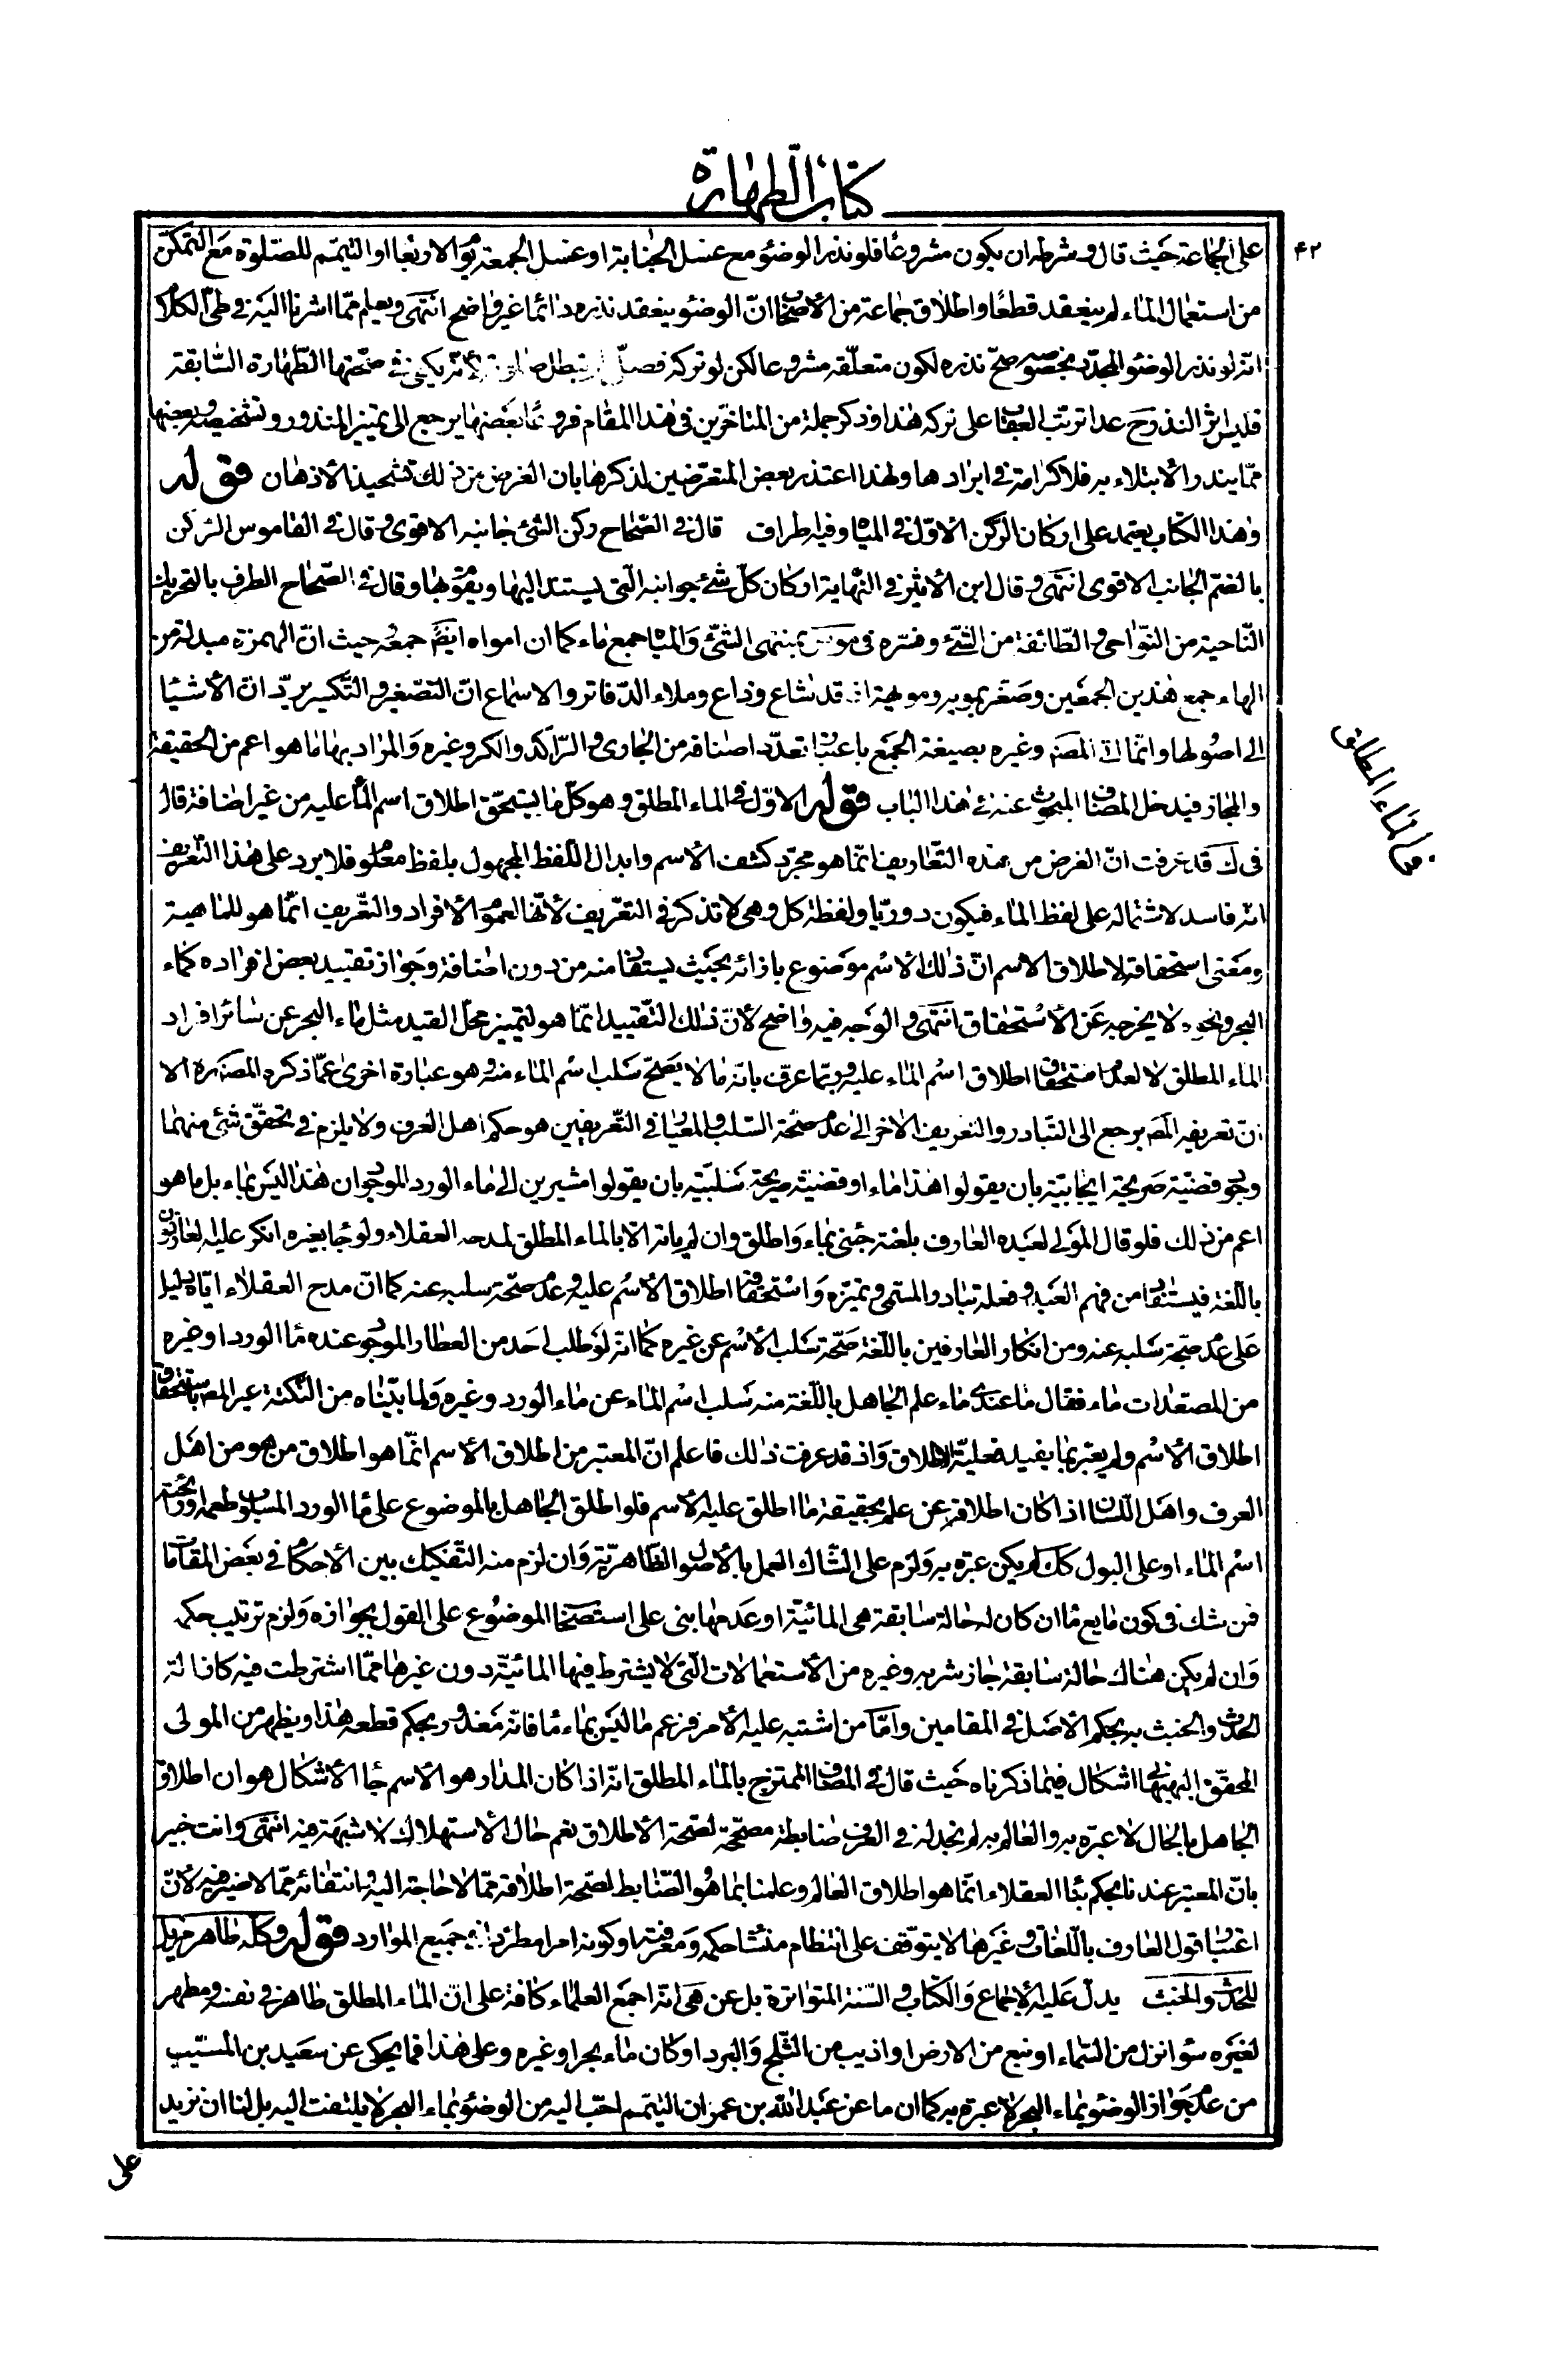 كتاب الطهارة
۴۲
على الجماعة حيث قال وشرطه ان يكون مشروعا فلو نذر الوضوء مع غسل الجنابة او غسل الجمعة يوم الاربعاء او التيمم للصلوة مع التمكن
من استعمال الماء لم ينعقد قطعا واطلاق جماعة من الأصحاب انّ الوضوء ينعقد نذره دائما غير واضح انتهى ويعلم ممّا اشرنا اليه في طىّ الكلام
انه لو نذر الوضوء المجدّد بخصوصه صحّ نذره لكون متعلّقه مشروعا لكن لو تركه فصلّى لم تبطل صلوته لأنه يكفي في صحّتها الطّهارة السّابقة
فليس اثر النذر ح عدا ترتب العقاب على تركه هذا وذكر جملة من المتاخّرين في هذا المقام فروعًا بعضها يرجع الى تميز المنذور وتشخيصه وبعضها
ممّا يندر الأبتلاء به فلا كرامة في ايرادها ولهذا اعتذر بعض المتعرّضين لذكرها بان الغرض من ذلك تشحيذ الأذهان قوله
وهذا الكتاب يعتمد على اركان الركن الاوّل في المياه وفيه اطراف قال في الصّحاح ركن الشئ جانبه الاقوى وقال في القاموس الرّكن
بالضمّ الجانب الاقوى انتهى وقال ابن الأثير في النّهاية اركان كلّ شئ جوانبه الّتى يستند اليها ويقوم بها وقال في الصّحاح الطرف بالتحريك
النّاحية من النّواحى والطّائفة من الشّئ وفسّره في موسى بمنتهى الشئ والمياه جمع ماء كما ان امواه ايضًا جمعه حيث انّ الهمزة مبدلة من
الهاء جمع هذين الجمعين وصغّر بمويه ومويهة اذ قد شاع وذاع وملاء الدّفاتر والاسماع انّ التصّغير والتّكسير يردّان الأشياء
الى اصولها وانّما اتى المصه وغيره بصيغة الجمع باعتبار تعدّد اصنافه من الجارى والرّاكد والكر وغيره والمراد بها ما هو اعم من الحقيقة
والمجاز فيدخل المضاف المبحوث عنه في هذا الباب قوله الاوّل في الماء المطلق وهو كلّ ما يستحقّ اطلاق اسم الماء عليه من غير اضافة قال
في ك قد عرفت انّ الغرض من هذه التّعاريف انّما هو مجرّد كشف الأسم وابدال اللّفظ المجهول بلفظ معلوم فلا يرد على هذا التعريف
انه فاسد لاشتماله على لفظ الماء فيكون دوريّا ولفظة كل وهى لا تذكر في التعّريف لأنّها لعموم الأفراد والتّعريف انّما هو للماهية
ومعنى استحقاقه لاطلاق الاسم انّ ذلك الأسم موضوع بازائه بحيث يستفاد منه من دون اضافة وجواز تقييد بعض افراده كماء
البحر ونحوه لا يخرجه عن الأستحقاق انتهى والوجه فيه واضح لأنّ ذلك التقّييد انّما هو لتميز محلّ القيد مثل ماء البحر عن سائر افراد
الماء المطلق لا لعدم استحقاق اطلاق اسم الماء عليه وربّما عرف بانه ما لا يصحّ سلب اسم الماء منه وهو عبارة اخرى عمّا ذكره المصه ره الا
انّ تعريف المصه يرجع الى التّبادر والتعريف الأخر الى عدم صحّة السّلب والمعيار في التّعريفين هو حكم اهل العرف ولا يلزم في تحقّق شئ منهما
وجود قضيّة صريحة ايجابيّة بان يقولوا هذا ماء او قضيّة صريحة سلبيّة بان يقولوا مشيرين الى ماء الورد الموجود ان هذا ليس بماء بل ما هو
اعم من ذلك فلو قال المولى لعبده العارف بلغته جئنى بماء واطلق وان لم ياته الا بالماء المطلق لمدحه العقلاء ولو جاء بغيره انكر عليه العارفون
باللّغة فيستفاد من فهم العبد وفعله تبادر المسمّى وتميزه واستحقاق اطلاق الأسم عليه وعدم صحّة سلبه عنه كما انّ مدح العقلاء ايّاه دليل
على عدم صحّة سلبه عنه ومن انكار العارفين باللّغة صحّة سلب الأسم عن غيره كما انّه لو طلب احد من العطار الموجود عنده ماء الورد او غيره
من المصعّدات ماء فقال ما عندى ماء علم الجاهل باللّغة منه سلب اسم الماء عن ماء الورد وغيره ولما بيّنّاه من النّكتة عبر المصه باستحقاق
اطلاق الأسم ولم يعبّر بما يفيد فعليّة الاطلاق واذ قد عرفت ذلك فاعلم انّ المعتبر من اطلاق الأسم انّما هو اطلاق من هو من اهل
العرف واهل اللّسان اذا كان اطلاقه عن علم بحقيقة ما اطلق عليه الأسم فلو اطلق الجاهل بالموضوع على ماء الورد المسلوب طعمه ورائحته
اسم الماء او على البول كك لم يكن عبرة به ولزم على الشّاك العمل بالأصول الظّاهريّة وان لزم منه التّفكيك بين الأحكام في بعض المقامات
فمن شك في كون مايع ماء ان كان له حالة سابقة هى المائيّة او عدمها بنى على استصحاب الموضوع على القول بجوازه ولزم ترتيب حكمه
وان لم يكن هناك حالة سابقة جاز شربه وغيره من الأستعمالات الّتى لا يشترط فيها المائيّة دون غيرها ممّا اشترطت فيه كازالة
الحدث والخبث به بحكم الاصل في المقامين وامّا من اشتبه عليه الأمر فزعم ما ليس بماء ماء فانّه معذور بحكم قطعه هذا ويظهر من المولى
المحقّق البهبهانى اشكال فيما ذكرناه حيث قال في المضاف الممتزج بالماء المطلق انّه اذا كان المدار هو الاسم جاء الأشكال هو ان اطلاق
الجاهل بالحال لا عبرة به والعالم به لم نجد له في العرف ضابطة مصحّحة لصحّة الأطلاق نعم حال الأستهلاك لا شبهة فيه انتهى وانت خبير
بانّ المعتبر عندنا بحكم بناء العقلاء انّما هو اطلاق العالم وعلمنا بما هو الضّابط لصحّة اطلاقه ممّا لا حاجة اليه وانتفائه ممّا لا ضير فيه لأنّ
اعتبار قول العارف باللّغات وغيرها لا يتوقّف على انتظام منشا حكمه ومعرفته او كونه امرا مطّردا في جميع الموارد قوله وكلّه طاهر مزيل
للحدث والخبث يدلّ عليه الأجماع والكتاب والسّنة المتواترة بل عن هى انّه اجمع العلماء كافة على انّ الماء المطلق طاهر في نفسه ومطهر
لغيره سواء نزل من السّماء او نبع من الارض او اذيب من الثّلج والبرد او كان ماء بحر او غيره وعلى هذا فما يحكى عن سعيد بن المسيّب
من عدم جواز الوضوء بماء البحر لا عبرة به كما ان ما عن عبد الله بن عمر ان التيمّم احبّ اليه من الوضوء بماء البحر لا يلتفت اليه بل لنا ان نزيد
على
في الماء المطلق